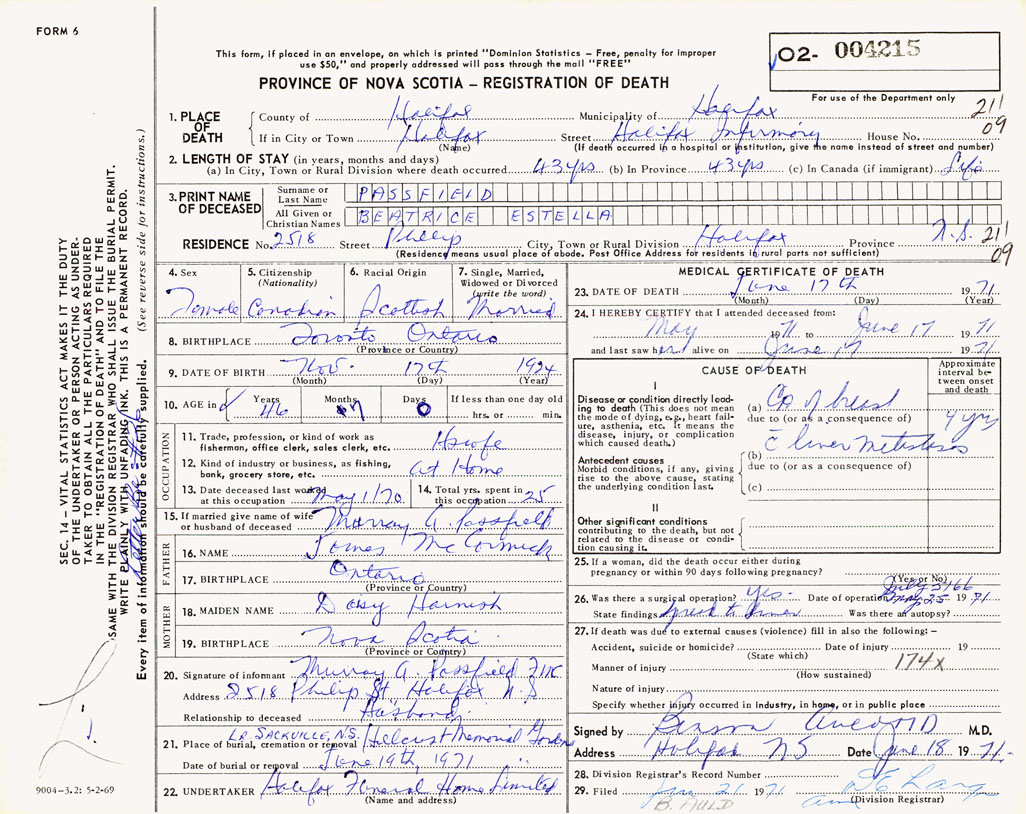 FORM 6
This form, if placed in an envelope, on which is printed "Dominion Statistics – Free, penalty for improper
use $50," and properly addressed will pass through the mail "FREE"
PROVINCE OF NOVA SCOTIA – REGISTRATION OF DEATH
02- 004215
For use of the Department only
211
09
1. PLACE OF DEATH
County of Halifax Municipality of Halifax
If in City or Town Halifax Street Halifax Infirmary House No.
(Name) (If death occurred in a hospital or institution, give the name instead of street and number)
2. LENGTH OF STAY (in years, months and days)
(a) In City, Town or Rural Division where death occurred 43 yrs (b) In Province 43 yrs (c) In Canada (if immigrant) Life
3. PRINT NAME OF DECEASED
Surname or Last Name PASSFIELD
All Given or Christian Names BEATRICE ESTELLA
RESIDENCE No. 2518 Street Philip City, Town or Rural Division Halifax Province N.S. 211
09
(Residence means usual place of abode. Post Office Address for residents in rural parts not sufficient)
4. Sex Female
5. Citizenship (Nationality) Canadian
6. Racial Origin Scottish
7. Single, Married, Widowed or Divorced (write the word) Married
8. BIRTHPLACE Toronto Ontario
(Province or Country)
9. DATE OF BIRTH Nov. 17th 1924
(Month) (Day) (Year)
10. AGE in Years 46 Months 7 Days 0 If less than one day old
hrs. or min.
OCCUPATION
11. Trade, profession, or kind of work as
fisherman, office clerk, sales clerk, etc. Hswfe
12. Kind of industry or business, as fishing,
bank, grocery store, etc. At Home
13. Date deceased last worked
at this occupation May 1/70
14. Total yrs. spent in
this occupation 25
15. If married give name of wife
or husband of deceased Murray A. Passfield
FATHER
16. NAME James McCormick
17. BIRTHPLACE Ontario
(Province or Country)
MOTHER
18. MAIDEN NAME Daisy Harnish
19. BIRTHPLACE Nova Scotia
(Province or Country)
20. Signature of informant Murray A. Passfield
Address 2518 Philip St. Halifax N.S
Relationship to deceased Husband
LR. SACKVILLE, N.S.
21. Place of burial, cremation or removal Memorial Gardens
Date of burial or removal June 19th, 1971
22. UNDERTAKER Halifax Funeral Home Limited
(Name and address)
MEDICAL CERTIFICATE OF DEATH
23. DATE OF DEATH June 17th 1971
(Month) (Day) (Year)
24. I HEREBY CERTIFY that I attended deceased from:
May 1971 to June 17 1971
and last saw her alive on June 17 1971
CAUSE OF DEATH
Approximate interval between onset and death
I
Disease or condition directly leading to death (This does not mean the mode of dying, e.g., heart failure, asthenia, etc. It means the disease, injury, or complication which caused death.)
(a) Ca of breast 4 yrs
due to (or as a consequence of)
Antecedent causes
Morbid conditions, if any, giving rise to the above cause, stating the underlying condition last.
(b) c̄ liver metastases
due to (or as a consequence of)
(c)
II
Other significant conditions
contributing to the death, but not related to the disease or condition causing it.
25. If a woman, did the death occur either during
pregnancy or within 90 days following pregnancy?
(Yes or No)
26. Was there a surgical operation? Yes- Date of operation May 25 1971
State findings spread to Was there an autopsy?
27. If death was due to external causes (violence) fill in also the following: –
Accident, suicide or homicide? Date of injury 19
(State which)
Manner of injury 174x
(How sustained)
Nature of injury
Specify whether injury occurred in industry, in home, or in public place
Signed by Benson Auld MD M.D.
Address Halifax NS Date June 18 1971-
28. Division Registrar's Record Number
29. Filed 21 1971
B. AULD
(Division Registrar)
SEC. 14 – VITAL STATISTICS ACT MAKES IT THE DUTY
OF THE UNDERTAKER OR PERSON ACTING AS UNDER-
TAKER TO OBTAIN ALL THE PARTICULARS REQUIRED
IN THE "REGISTRATION OF DEATH" AND TO FILE THE
SAME WITH THE DIVISION REGISTRAR WHO SHALL ISSUE THE BURIAL PERMIT.
WRITE PLAINLY WITH UNFADING INK. THIS IS A PERMANENT RECORD.
Every item of information should be carefully supplied. (See reverse side for instructions.)
9004-3.2: 5-2-69